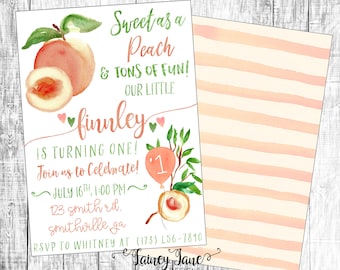 Sweet as a
Peach
& TONS OF FUN!
OUR LITTLE
finnley
IS TURNING ONE!
Join us to Celebrate!
JULY 16TH, 1:00 PM
123 smith rd.
smithville, ga
RSVP TO WHITNEY AT (173) 456-7890
1
Lainey Jane